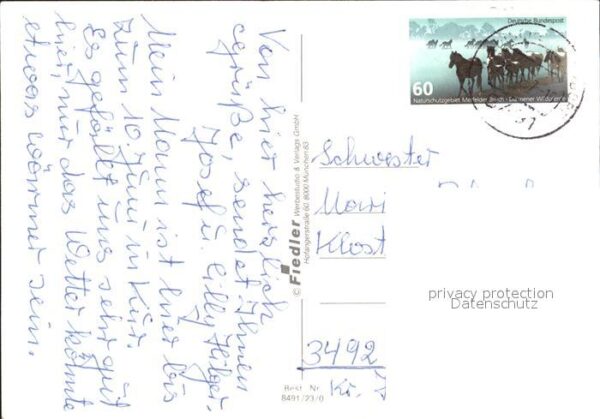 Von hier herzlich
Grüße, sendet Ihnen
Josef u. Cilly
Mein Mann ist hier bis
zum 10. Juni in Kur.
Es gefällt uns sehr gut
hier, nur das Wetter könnte
etwas wärmer sein.
© Fiedler Werbestudio & Verlags GmbH
Hofangerstraße 60, 8000 München 83
Deutsche Bundespost
60
Naturschutzgebiet Merfelder Bruch · Dülmener Wildpferde
Schwester
Mari
Klost
privacy protection
Datenschutz
3492
Kr.
Best. Nr.
8491/23/0